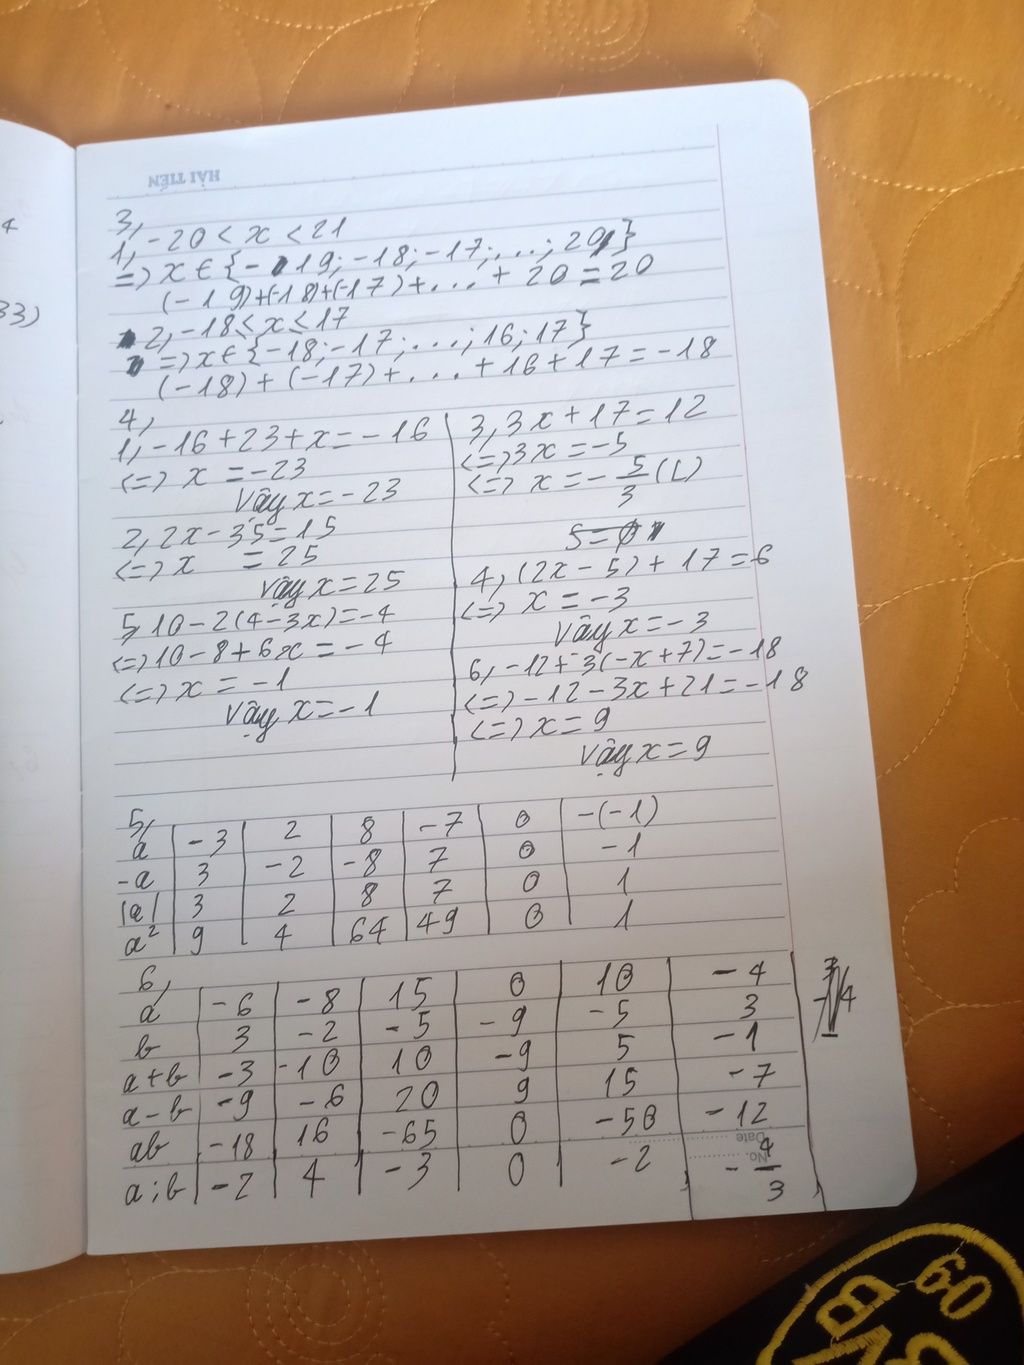 HẢI TIẾN
3,
1, -20 < x < 21
=> x ∈ {-19; -18; -17; ...; 20}
(-19)+(-18)+(-17)+... + 20 = 20
2, -18 ≤ x ≤ 17
=> x ∈ {-18; -17; ...; 16; 17}
(-18) + (-17) + ... + 16 + 17 = -18
4,
1, -16 + 23 + x = -16
<=> x = -23
Vậy x = -23
2, 2x - 35 = 15
<=> x = 25
Vậy x = 25
5, 10 - 2(4 - 3x) = -4
<=> 10 - 8 + 6x = -4
<=> x = -1
Vậy x = -1
3, 3x + 17 = 12
<=> 3x = -5
<=> x = -5/3 (L)
4, (2x - 5) + 17 = 6
<=> x = -3
Vậy x = -3
6, -12 + 3(-x + 7) = -18
<=> -12 - 3x + 21 = -18
<=> x = 9
Vậy x = 9
5,
a -3 2 8 -7 0 -(-1)
-a 3 -2 -8 7 0 -1
|a| 3 2 8 7 0 1
a² 9 4 64 49 0 1
6,
a -6 -8 15 0 10 -4
b 3 -2 -5 -9 -5 3
a+b -3 -10 10 -9 5 -1
a-b -9 -6 20 9 15 -7
ab -18 16 -65 0 -50 -12
a:b -2 4 -3 0 -2 -4/3
Date
No.
33)
60